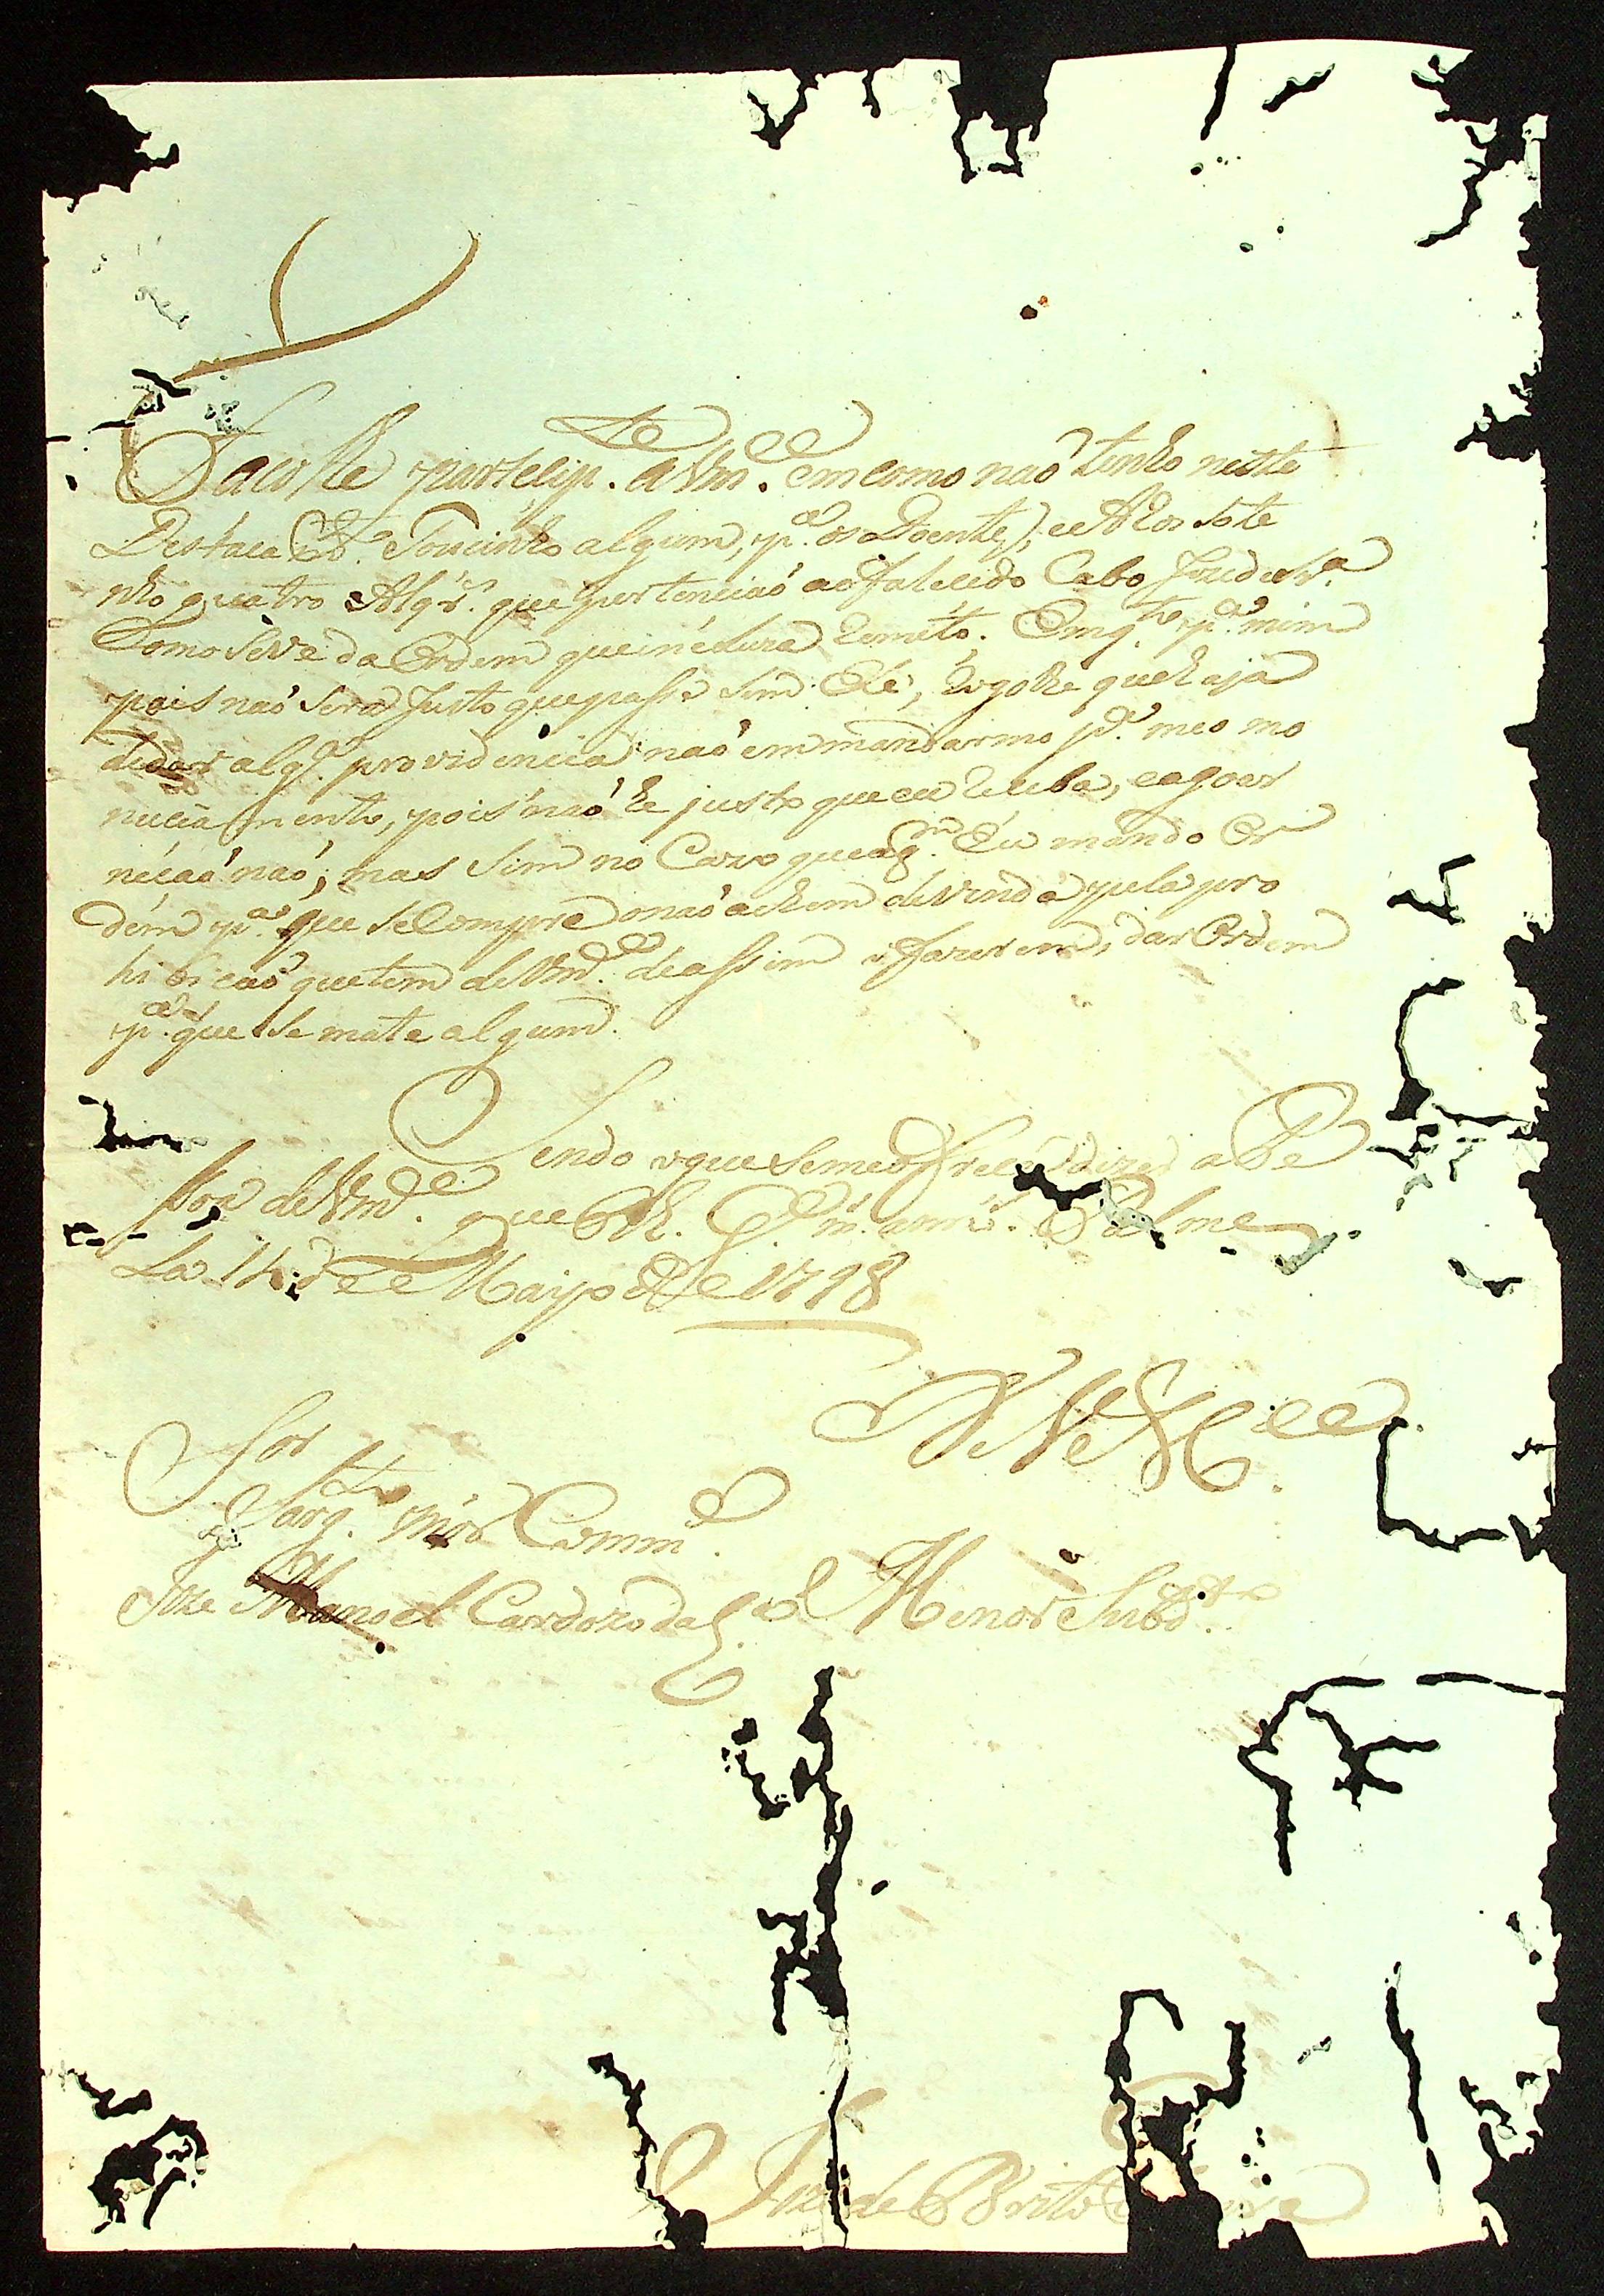 Façolhe partecip.te a Vm.ce em como naó tenho neste
Destacam.to Toucinho algum, p.a os Doentes, e ARos So te
nho quatro Alqr.s que pertenciaó ao falecido Cabo Joze da S.a
Como Se ve da Ordem que incluza Remeto. Emq.to p.a mim
pois naó Sera Justo que passe Sem elle, Rogolhe que haja
de dar alg.a providencia naó em mandarmo p.a meo mo
niciamento, pois naó he justo que eu Reçeba, e a goar
niçaó naó; mas Sim no Cazo que a q.m Eu mando Or
dem p.a que Se Compre o naó achem de venda pela pro
hibiçaó que tem de Vm.ce de assim o fazerem, dar Ordem
p.a que Se mate algum.
Sendo o que Se me offrece dizer a Pe
Soa de Vm.ce que D.s G.de m. ann.s Palme
La 14 de Mayo de 1798
De V. M.ce
S.or
Sarg.to mór Comm.e
Joze Manoel Cardozo da S.a
O Menor Subd.to
Joze de Brito